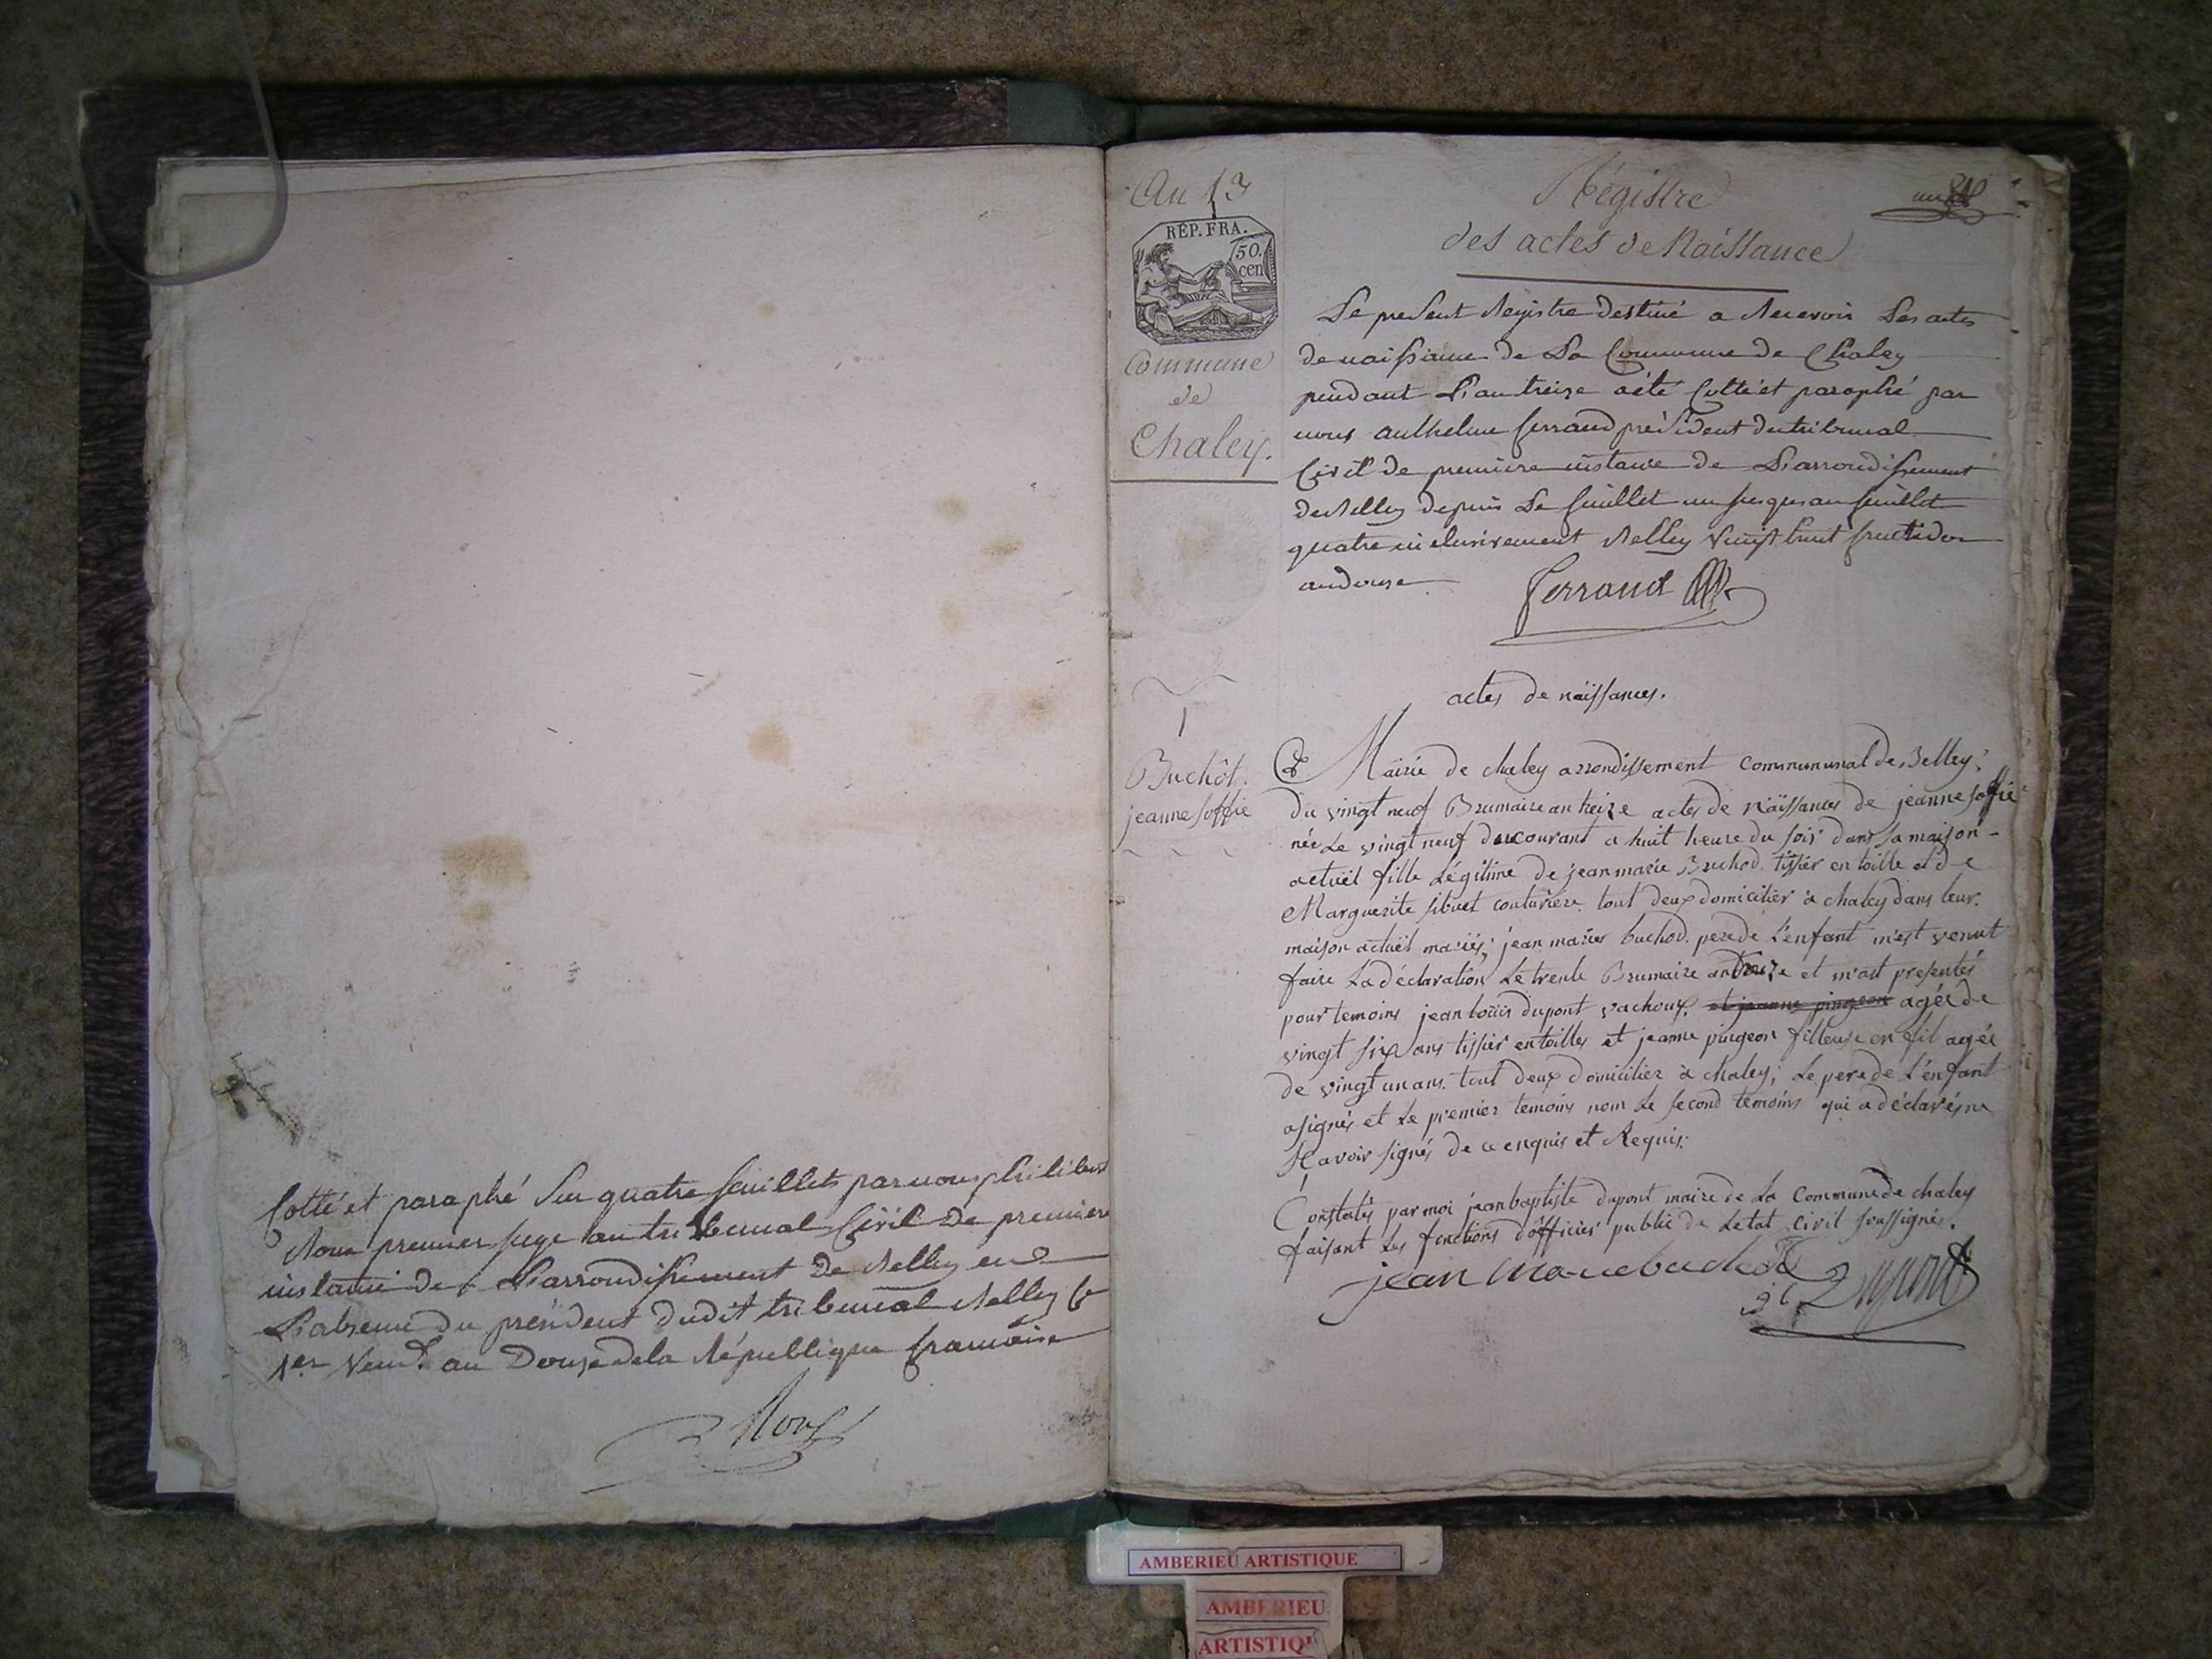 Cotté et paraphé sur quatre feuillets par nous philibert
Roux premier juge au tribunal Civil de premiere
instance de L'arrondissement de Belley en
L'absence du président dudit tribunal Belley le
1er Vend.re an Douze de la République francaise
Roux
An 13
REP. FRA.
50.
cen
Commune
de
Chaley.
Régistre
des actes de Naissance
un
Le present Registre destiné a Recevoir Les actes
de naissance de La Commune de Chaley
pendant L'an treize a été Cotté et paraphé par
nous anthelme ferrand président du tribunal
Civil de premiere instance de L'arrondissement
de Belley depuis Le feuillet un jusques au feuillet
quatre inclusivement Belley vingt huit fructidor
an douze
ferrand
actes de naissances.
1
Buchôt.
jeanne soffie
Mairie de chaley arrondissement commununal de Belley;
Du vingt neuf Brumaire an treize actes de naissances de jeanne soffie
née Le vingt neuf du courant a huit heure du soir dans sa maison
actuel fille Légitime de jean marie Buchod tissier en toille et de
Marguerite sibuet couturière tout deux domicilier à chaley dans leur
maison actuël mariés; jean marie buchod pere de L'enfant m'est venut
faire La déclaration Le trente Brumaire an treize et m'at presentés
pour temoins jean loüis dupont vachoux et jeanne pingeon agés de
vingt six ans tissier en toilles et jeanne pingeon filleuse en fil agée
de vingt un ans tout deux domicilier à chaley; Le pere de L'enfant
a signés et Le premier temoins nom Le second temoins qui a déclarés ne
savoir signés de ce enquis et Requis.
Constatés par moi jean baptiste dupont maire de La Commune de chaley
faisant Les fonctions d'officier public de Letat civil soussignés.
jean marie buchod
Dupont
AMBERIEU ARTISTIQUE
AMBERIEU
ARTISTIQ